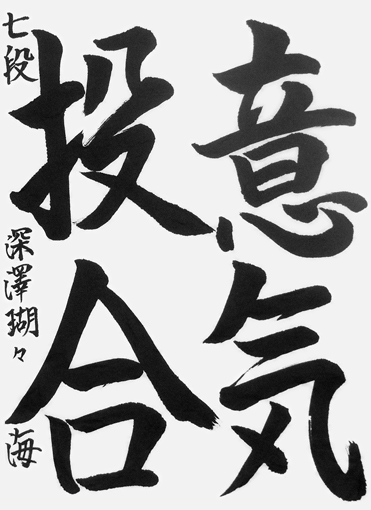 意気
投合
七段 深澤瑚々海